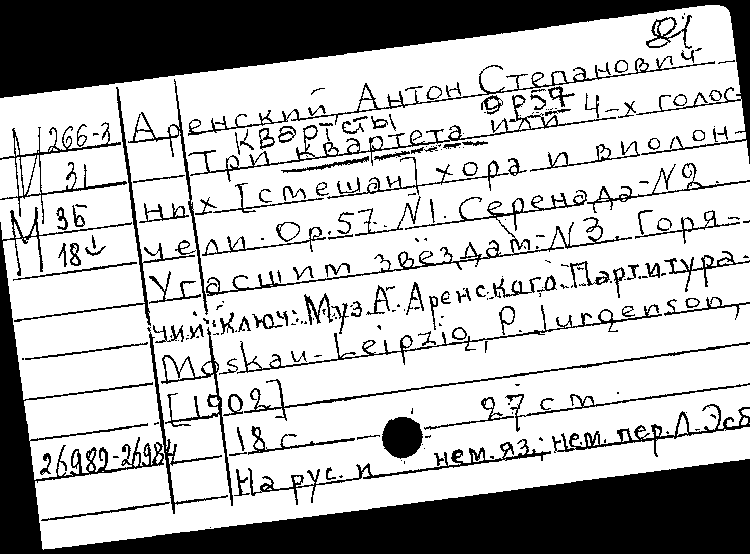 81
Аренский, Антон Степанович
квартеты ор57
Три квартета или 4-х голос
ных [смешан] хора и виолон-
чели. Ор.57. N1. Серенада-N2.
Угасшим звёздам-N3. Горя-
чий ключ: Муз. А. Аренского. Партитура-
Moskau-Leipzig, P. Jurgenson,
[1902]
18 с. 27 cm.
На рус. и нем. яз.; нем. пер. Л. Эсб
М 266-3
31
М 3Б
18↓
26982-26984